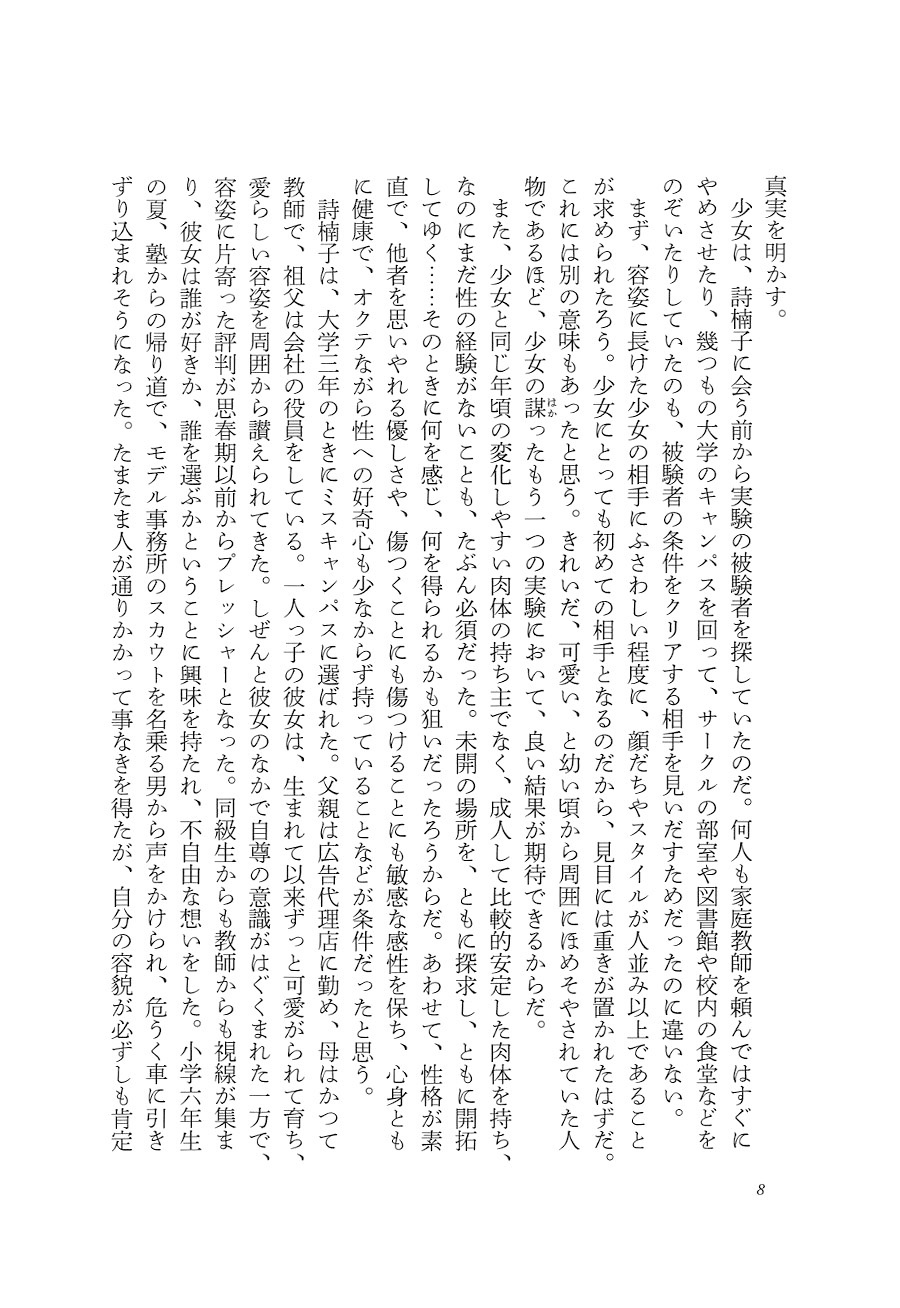 真実を明かす。
　少女は、詩楠子に会う前から実験の被験者を探していたのだ。何人も家庭教師を頼んではすぐに
やめさせたり、幾つもの大学のキャンパスを回って、サークルの部室や図書館や校内の食堂などを
のぞいたりしていたのも、被験者の条件をクリアする相手を見いだすためだったのに違いない。
　まず、容姿に長けた少女の相手にふさわしい程度に、顔だちやスタイルが人並み以上であること
が求められたろう。少女にとっても初めての相手となるのだから、見目には重きが置かれたはずだ。
これには別の意味もあったと思う。きれいだ、可愛い、と幼い頃から周囲にほめそやされていた人
物であるほど、少女の謀はかったもう一つの実験において、良い結果が期待できるからだ。
　また、少女と同じ年頃の変化しやすい肉体の持ち主でなく、成人して比較的安定した肉体を持ち、
なのにまだ性の経験がないことも、たぶん必須だった。未開の場所を、ともに探求し、ともに開拓
してゆく……そのときに何を感じ、何を得られるかも狙いだったろうからだ。あわせて、性格が素
直で、他者を思いやれる優しさや、傷つくことにも傷つけることにも敏感な感性を保ち、心身とも
に健康で、オクテながら性への好奇心も少なからず持っていることなどが条件だったと思う。
　詩楠子は、大学三年のときにミスキャンパスに選ばれた。父親は広告代理店に勤め、母はかつて
教師で、祖父は会社の役員をしている。一人っ子の彼女は、生まれて以来ずっと可愛がられて育ち、
愛らしい容姿を周囲から讃えられてきた。しぜんと彼女のなかで自尊の意識がはぐくまれた一方で、
容姿に片寄った評判が思春期以前からプレッシャーとなった。同級生からも教師からも視線が集ま
り、彼女は誰が好きか、誰を選ぶかということに興味を持たれ、不自由な想いをした。小学六年生
の夏、塾からの帰り道で、モデル事務所のスカウトを名乗る男から声をかけられ、危うく車に引き
ずり込まれそうになった。たまたま人が通りかかって事なきを得たが、自分の容貌が必ずしも肯定
8